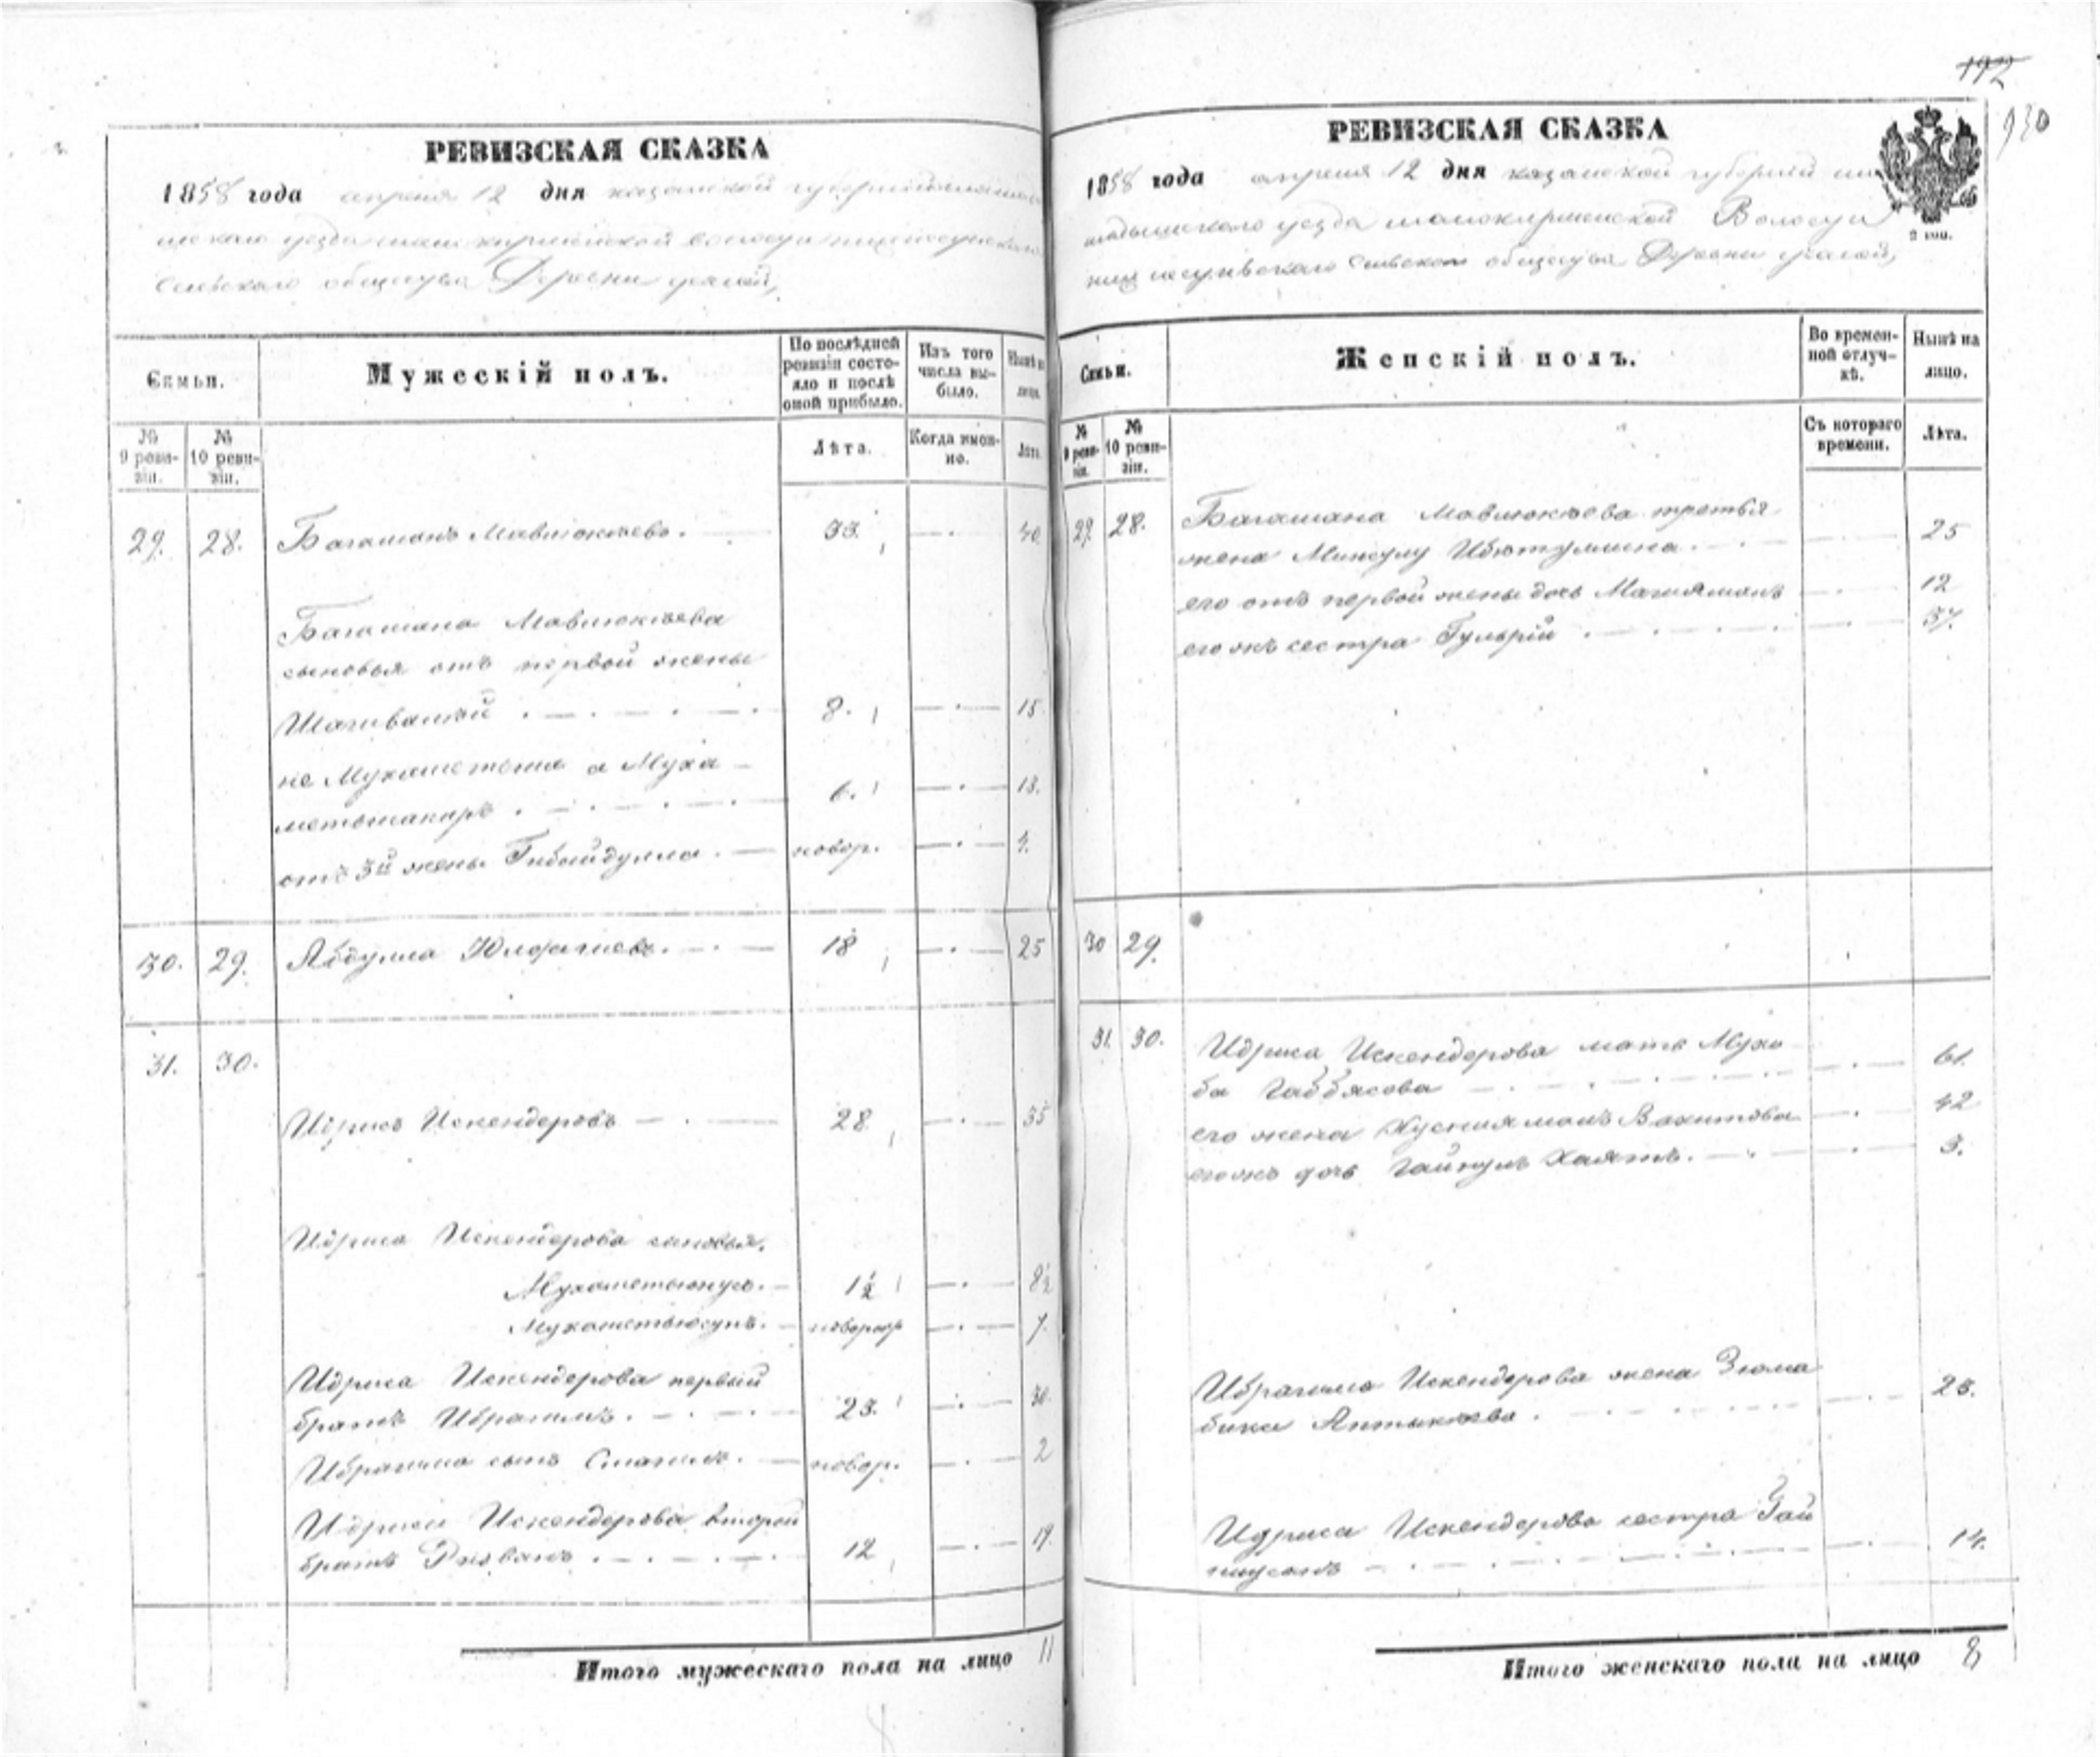 192
930
РЕВИЗСКАЯ СКАЗКА
1858 года апреля 12 дня казанской губернии мама
дышскаго уезда волости
сельскаго общества Деревни
Семьи.
Мужескій полъ.
По послѣдней ревизіи состояло и послѣ оной прибыло.
Изъ того числа выбыло.
Нынѣ на лицо.
№ 9 ревизіи.
№ 10 ревизіи.
Лѣта.
Когда именно.
Лѣта.
29. 28. Багаманъ Мавлюкѣевъ. 33. 40.
Багамана Мавлюкѣева
сыновья отъ первой жены
Шагивалей 8. 15.
не Мухаметша а Муха-
метшакиръ 6. 13.
отъ 3й жены Гибайдулла. новор. 4.
30. 29. Абдулла 18 25
31. 30.
Идрисъ Искендеровъ 28. 35
Идриса Искендерова сыновья.
Мухаметъюнусъ. 1½ 8½
Мухаметъюсупъ. новорор 7.
Идриса Искендерова первый
братъ Ибрагимъ. 23. 30.
Ибрагима сынъ Смагилъ. новор. 2
Идриса Искендерова второй
братъ Ризванъ 12 19.
Итого мужескаго пола на лицо 11
РЕВИЗСКАЯ СКАЗКА
1858 года апреля 12 дня казанской губернии ма
мадышскаго уезда Волости
сельскаго общества Деревни
2 коп.
Семьи.
Женскій полъ.
Во временной отлучкѣ.
Нынѣ на лицо.
№ 9 ревизіи.
№ 10 ревизіи.
Съ котораго времени.
Лѣта.
29. 28. Багамана Мавлюкѣева третья
жена 25
его отъ первой жены дочь 12
его жъ сестра 37.
30 29.
31. 30. Идриса Искендерова мать Мухи
ба Габбясова 61.
его жена Вахитова 42
его жъ дочь Хаятъ. 3.
Ибрагима Искендерова жена Зюма
бика 23.
Идриса Искендерова сестра Гай
14.
Итого женскаго пола на лицо 8